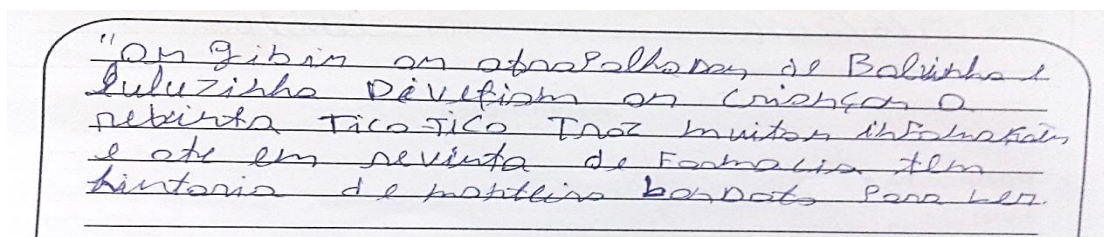 "Os gibis os atrapalhados de Bolinha e
luluzinha Divefiam os crianças a
rebista Tico-Tico Traz muitas infomaçois
e ate em revista de Farmacia tem
históría de monteiro bonbato para Ler